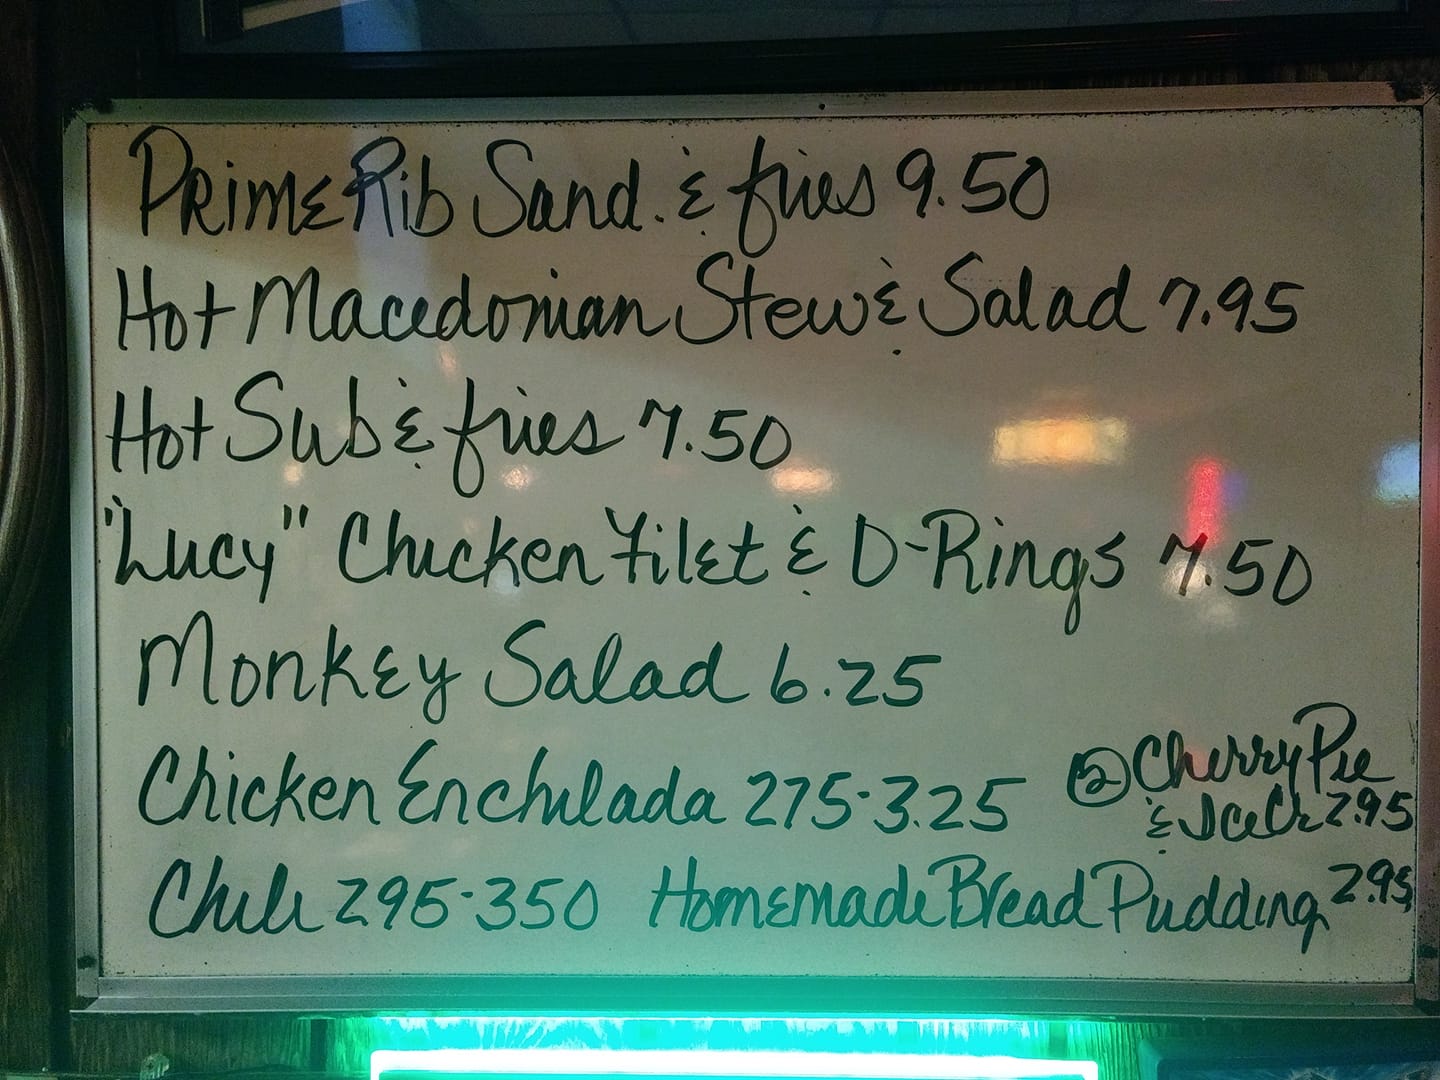 Prime Rib Sand. & fries 9.50
Hot Macedonian Stew & Salad 7.95
Hot Sub & fries 7.50
"Lucy" Chicken Filet & O-Rings 7.50
Monkey Salad 6.25
Chicken Enchilada 275-3.25
② Cherry Pie
& Ice Cr 2.95
Chili 295-350 Homemade Bread Pudding 2.95